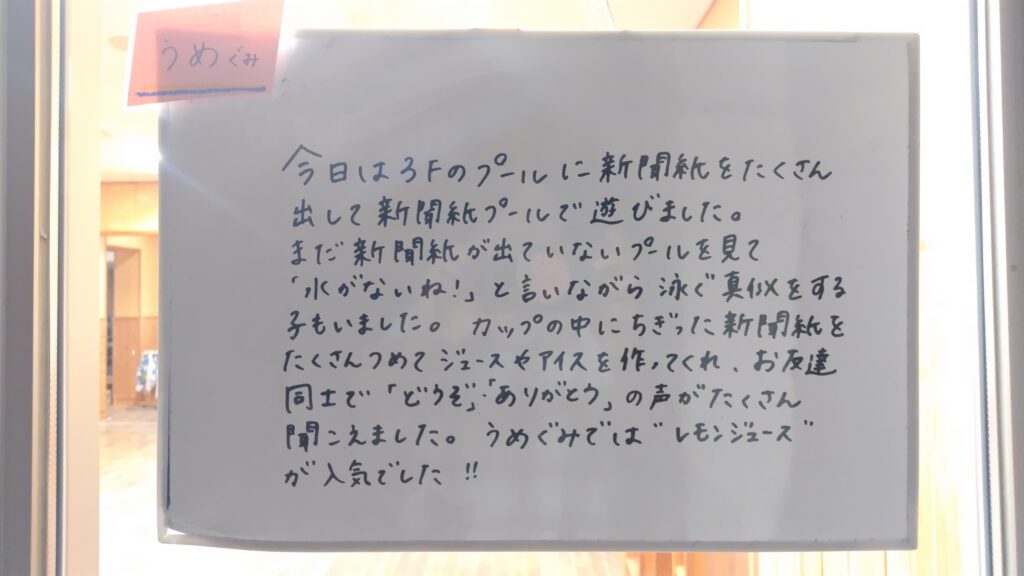 うめぐみ
今日は3Fのプールに新聞紙をたくさん
出して新聞紙プールで遊びました。
まだ新聞紙が出ていないプールを見て
「水がないね!」と言いながら泳ぐ真似をする
子もいました。カップの中にちぎった新聞紙を
たくさんつめてジュースやアイスを作ってくれ、お友達
同士で「どうぞ」・「ありがとう」の声がたくさん
聞こえました。うめぐみでは"レモンジュース"
が人気でした!!